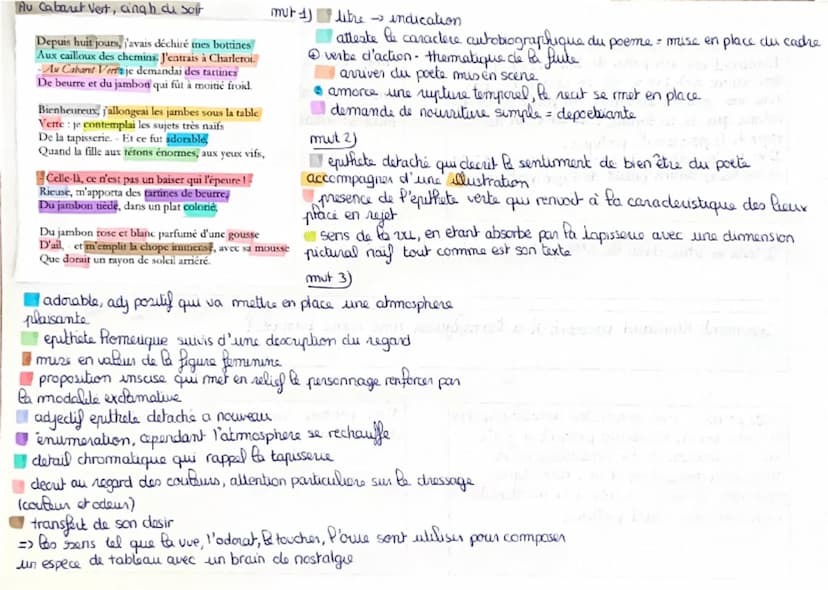 Au Cabaret Vert, cinq h du soir
Depuis huit jours, j'avais déchiré mes bottines
Aux cailloux des chemins. J'entrais à Charleroi.
- Au Cabaret-Vert : je demandai des tartines
De beurre et du jambon qui fût à moitié froid.
Bienheureux, j'allongeai les jambes sous la table
Verte : je contemplai les sujets très naïfs
De la tapisserie. - Et ce fut adorable,
Quand la fille aux tétons énormes, aux yeux vifs,
- Celle-là, ce n'est pas un baiser qui l'épeure ! -
Rieuse, m'apporta des tartines de beurre,
Du jambon tiède, dans un plat colorié,
Du jambon rose et blanc parfumé d'une gousse
D'ail, - et m'emplit la chope immense, avec sa mousse
Que dorait un rayon de soleil arriéré.
mvt 1) titre → indication
atteste le caractère autobiographique du poeme = mise en place du cadre
verbe d'action - thematique de la fuite
arriver du poete mis en scène
amorce une rupture temporel, le recit se met en place
demande de nourriture simple =
mvt 2)
epithete detaché qui decrit le sentiment de bien être du poete
accompagner d'une illustration
presence de l'epithete verte qui renvoit à la caracteristique des lieux
placé en rejet
sens de la vu, en etant absorbé par la tapisserie avec une dimension
pictural naïf tout comme est son texte
mvt 3)
adorable, adj positif qui va mettre en place une atmosphere
plaisante
epithète Homerique suivis d'une description du regard
mise en valeur de la figure feminine
proposition incise qui met en relief le personnage renforcer par
la modalité exclamative
adjectif epithete detaché a nouveau
énumeration, cependant l'atmosphere se rechauffe
detail chromatique qui rappel la tapisserie
decrit au regard des couleurs, attention particuliere sur le dressage
(couleur et odeur)
transfert de son desir
=> les sens tel que la vue, l'odorat, le toucher, l'ouie sont utiliser pour composer
un espece de tableau avec un brain de nostalgie